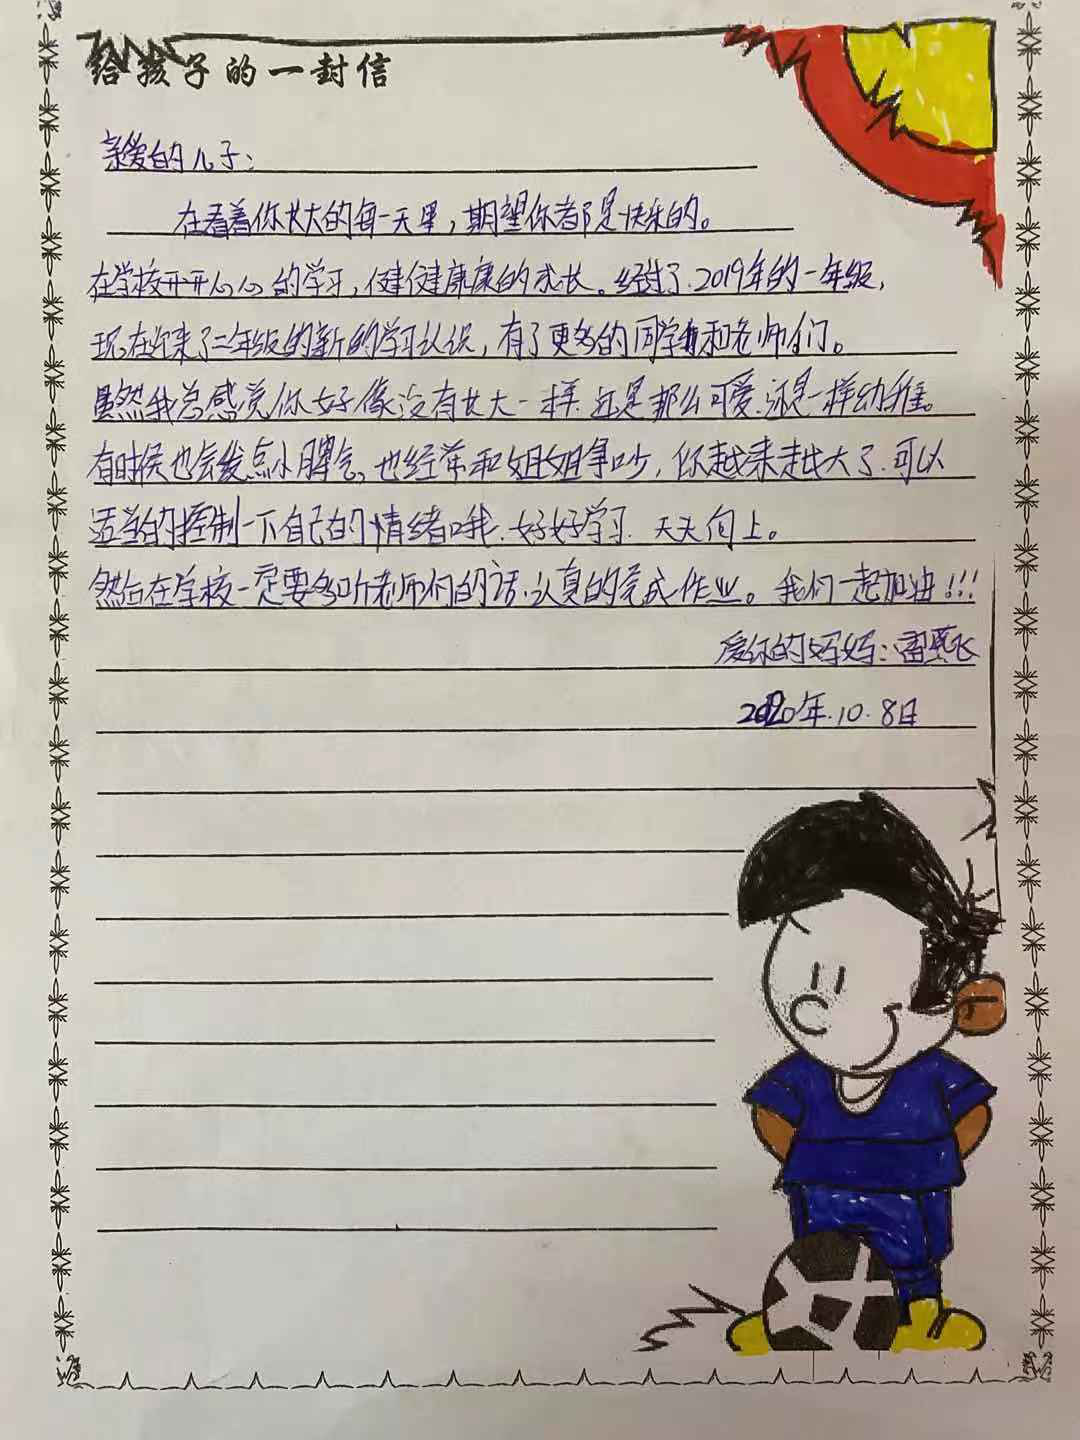 给孩子的一封信
亲爱的儿子:
在看着你长大的每一天里,期望你都是快乐的。
在学校开开心心的学习,健健康康的成长。经过了2019年的一年级,
现在迎来了二年级的新的学习认识,有了更多的同学和老师们。
虽然我总感觉你好像没有长大一样.还是那么可爱.还是一样幼稚。
有时候也会发点小脾气,也经常和姐姐争吵,你越来越大了.可以
适当的控制一下自己的情绪哦.好好学习.天天向上。
然后在学校一定要多听老师们的话.认真的完成作业。我们一起加油!!!
爱你的妈妈:雷燕飞
2020年.10.8日